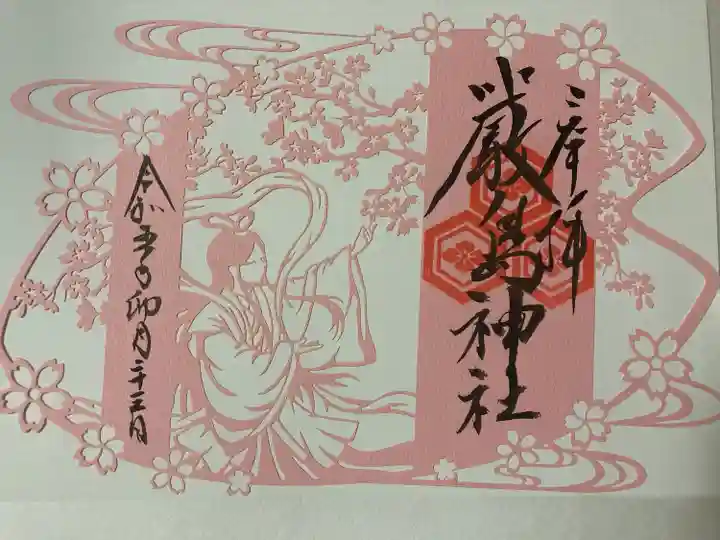 奉拝
厳島神社
令和五年卯月二十三日